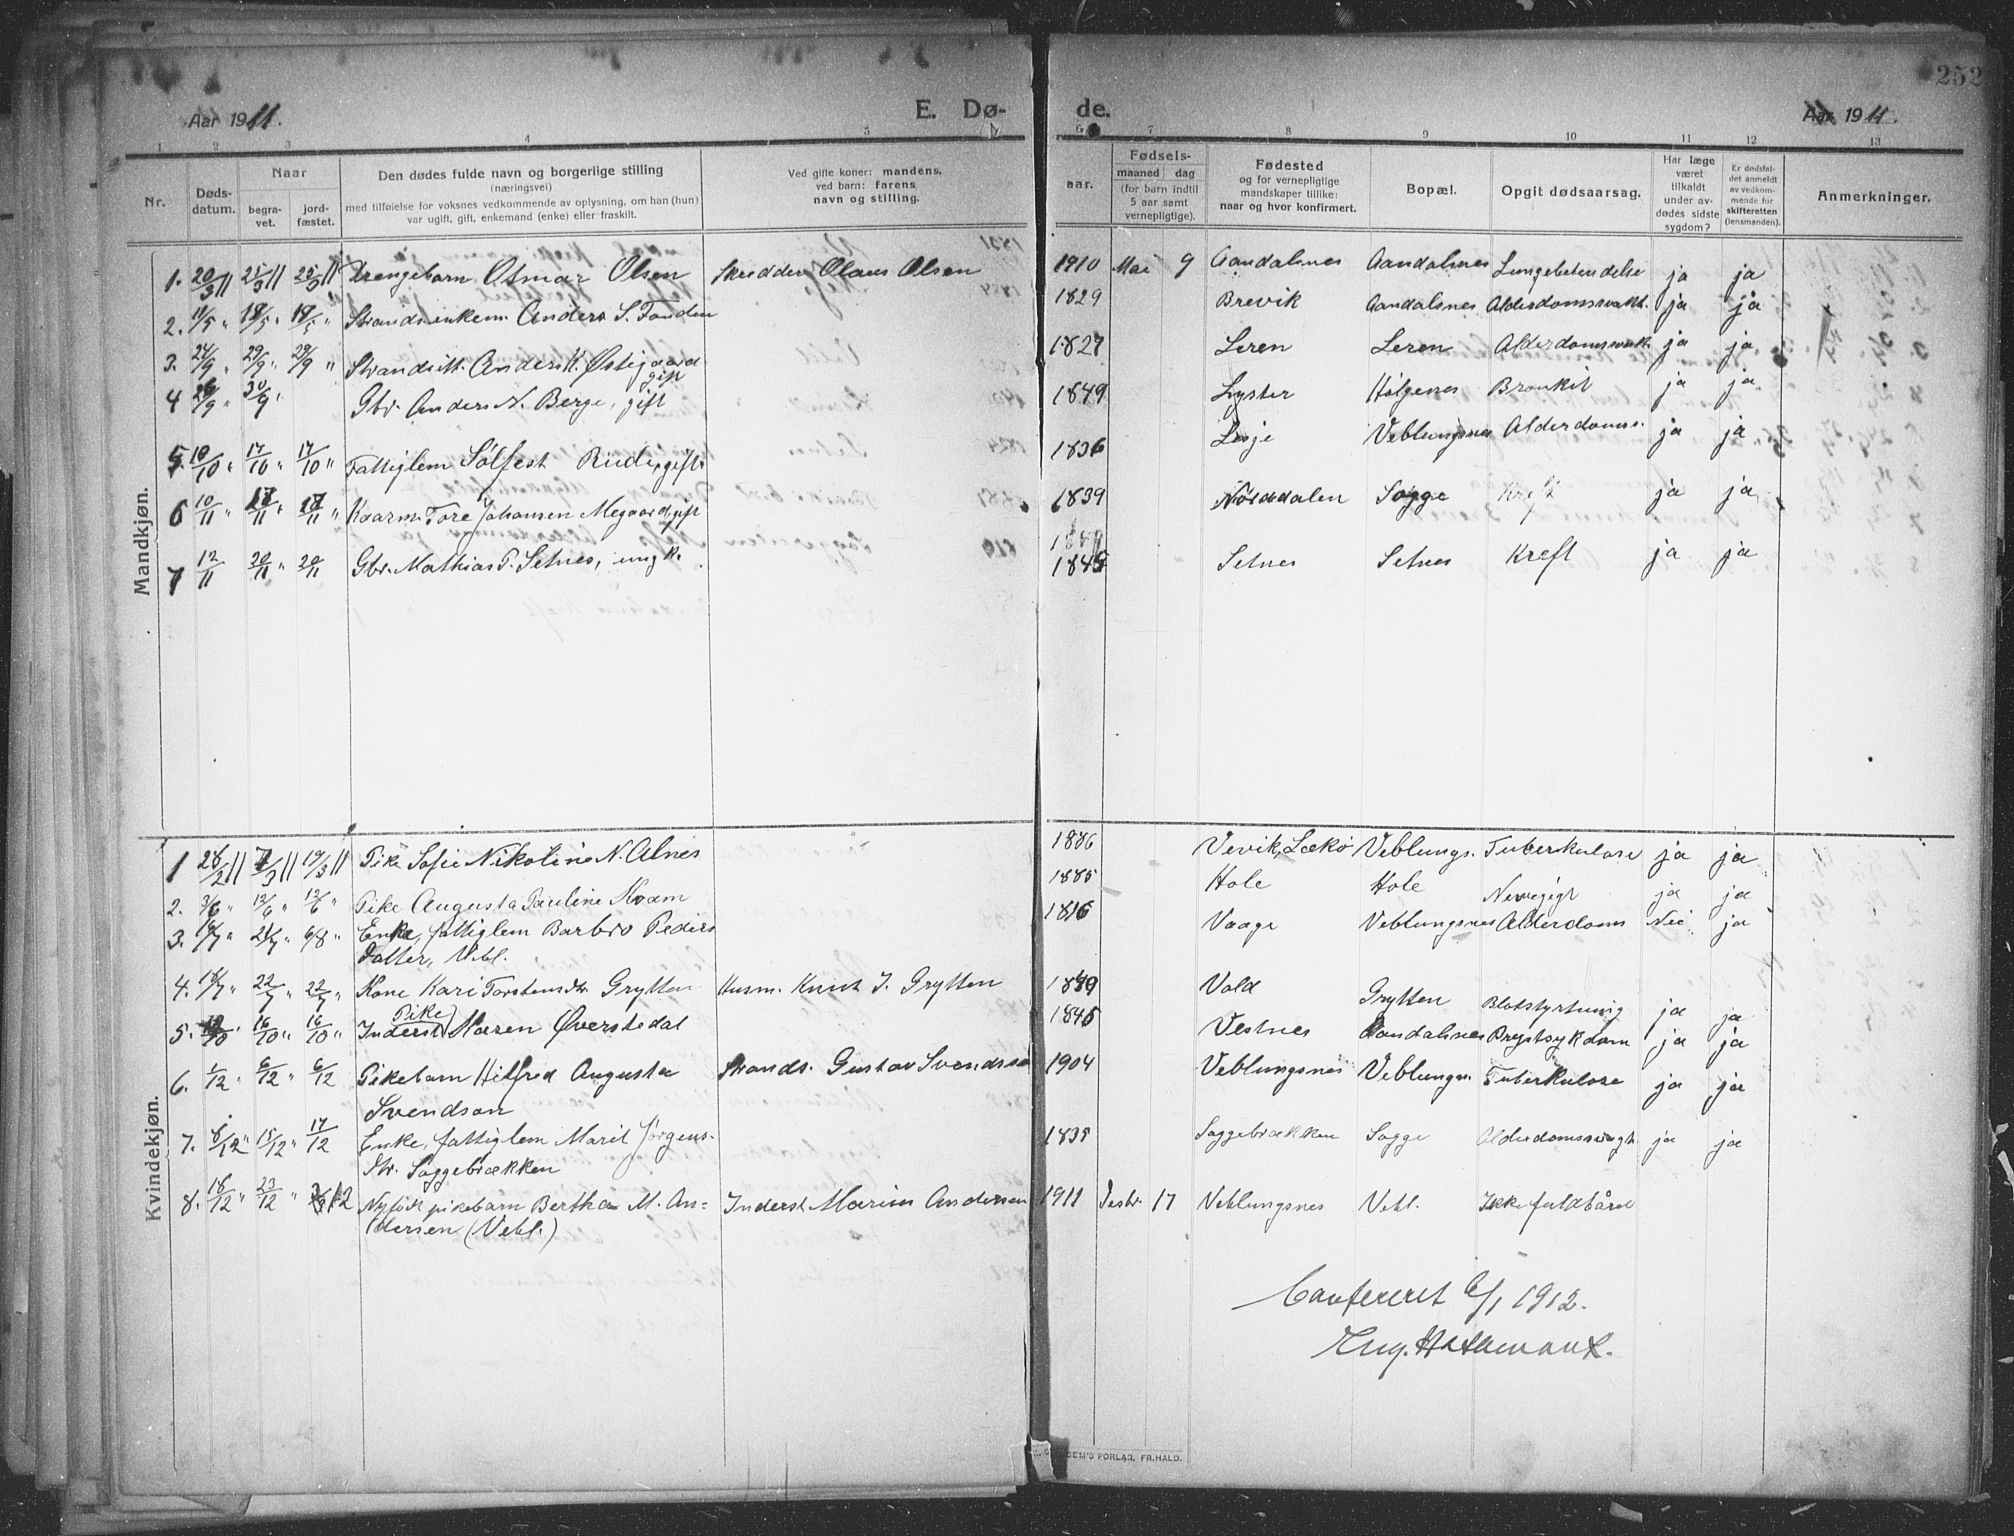 252
Aar 1911. E. Dø- de. Aar 1911.
1 2 3 4 5 6 7 8 9 10 11 12 13
Nr. Dødsdatum. Naar begravet. jordfæstet.
Den dødes fulde navn og borgerlige stilling
(næringsvei)
med tilføielse for voksnes vedkommende av oplysning, om han (hun)
var ugift, gift, enkemand (enke) eller fraskilt.
Ved gifte koner: mandens,
ved barn: farens
navn og stilling.
aar.
Fødsels-
maaned dag
(for barn indtil
5 aar samt
vernepligtige).
Fødested
og for vernepligtige
mandskaper tillike:
naar og hvor konfirmert.
Bopæl.
Opgit dødsaarsag.
Har læge
været
tilkaldt
under av-
dødes sidste
sygdom?
Er dødsfal-
det anmeldt
av vedkom-
mende for
skifteretten
(lensmanden).
Anmerkninger.
Mandkjøn.
1. 20/3 11 25/3 11 25/3 11 Drengebarn Otmar Olsen Skredder Olaus Olsen 1910 Mai 9 Aandalsnes Aandalsnes Lungebetendelse ja ja
2. 11/5 " 18/5 " 18/5 " Strands. enkem. Anders S. Tonden 1829 Brevik Aandalsnes Alderdomssvakh. ja ja
3. 24/9 " 29/9 " 29/9 " Strandsitt. Anders K. Østigaard gift 1827 Leren Leren Alderdomssvakh. ja ja
4 26/9 " 30/9 " Gbr. Anders N. Berge, gift 1849 Lyster Holgenes Bronkit ja ja
5. 10/10 " 17/10 " 17/10 " Fattiglem Solfest Rude, gift 1836 Lesje Veblungsnes Alderdoms. ja ja
6 10/11 " 17/11 " 17/11 " Kaarm. Tore Johansen Megaard, gift 1839 Norddalen Sogge Kreft ja ja
7 12/11 20/11 " 20/11 Gbr. Mathias P. Setnes, ungk. 1845 Setnes Setnes Kreft ja ja
Kvindekjøn.
1 28/2 11 7/3 11 19/3 11 Pike Sofie Nikoline N. Alnes 1886 Vevik, Lekø Veblungs. Tuberkulose ja ja
2. 3/6 " 12/6 " 12/6 " Pike Augusta Pauline Kvam 1885 Hole Hole ja ja
3. 21/7 " 6/8 " Enke, fattiglem Barbro Peders
datter, Vebl. 1816 Vaage Veblungsnes Alderdoms Nei ja
4. 18/7 " 22/7 " 22/7 " Kone Kari Torstensdtr. Grytten Husm. Knut J. Grytten Vold Grytten Blodstyrtning ja ja
5. 16/10 " 16/10 " Inderst (Pike) Maren Øverstedal 1845 Vestnes Aandalsnes Brystsykdom ja ja
6. 1/12 " 6/12 " 6/12 Pikebarn Hilfred Augusta
Svendson Strands. Gustav Svendsen 1904 Veblungsnes Veblungsn. Tuberkulose ja ja
7. 8/12 " 15/12 " 17/12 Enke, fattiglem Marit Jørgens-
dtr. Soggebrækken 1835 Soggebrækken Sogge Alderdomssvagh. ja ja
8. 18/12 " 23/12 " Nyfødt pikebarn Bertha M. An=
dersen (Vebl.) Inderst Marius Andersen 1911 Desbr. 17 Veblungsnes Vebl. Ikke fuldbåret
Confereret 6/1 1912.
FORLAG, FR. HALD.